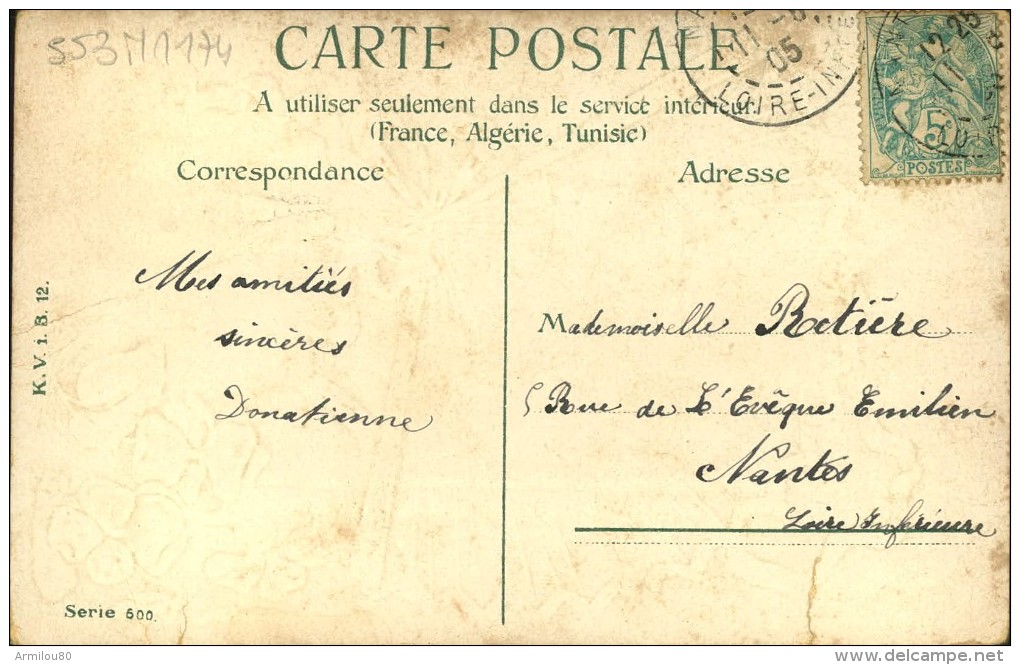 553M1174
CARTE POSTALE
A utiliser seulement dans le service intérieur.
(France, Algérie, Tunisie)
Correspondance
Adresse
05
LOIRE-INF
12 25
11
5
POSTES
Mes amitiés
sincères
Donatienne
Mademoiselle Ratière
5 Rue de L'Evêque Emilien
Nantes
Loire Inférieure
K. V. i. B. 12.
Serie 600.
Armilou80
www.delcampe.net